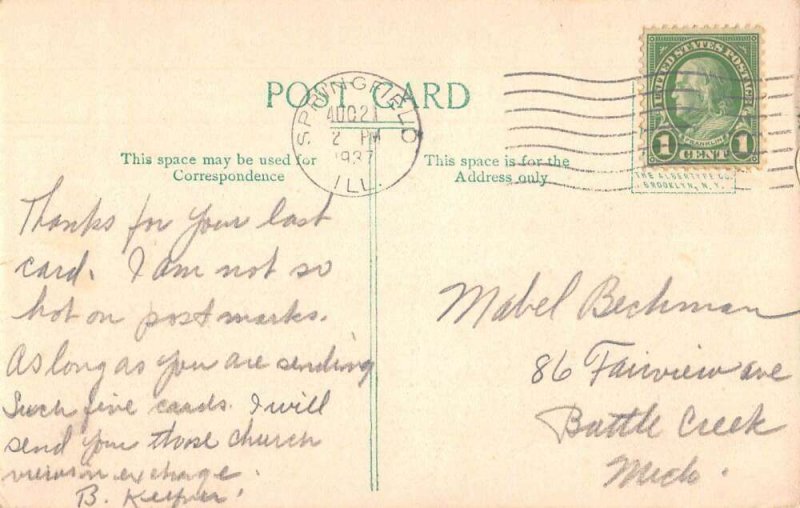 POST CARD
SPRINGFIELD
AUG 21
2 PM
1937
ILL.
UNITED STATES POSTAGE
FRANKLIN
1 CENT 1
THE ALBERTYPE CO.
BROOKLYN, N.Y.
This space may be used for
Correspondence
This space is for the
Address only
Thanks for your last
card. I am not so
hot on postmarks.
As long as you are sending
such fine cards. I will
send you those church
views in exchange.
B.
Mabel Beckman
86 Fairview ave
Battle Creek
Mich.